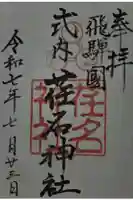 奉拝
飛騨國
式内 荏名神社
令和七年七月廿三日
荏名神社